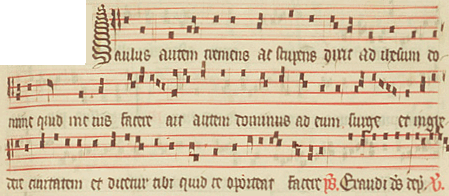 Saulus autem tremens ac stupens dixit ad ihesum do
mine quid me uis facere ait autem dominus ad eum surge et ingre
dere ciuitatem et dicetur tibi quid te oporteat facere ps. Exaudi